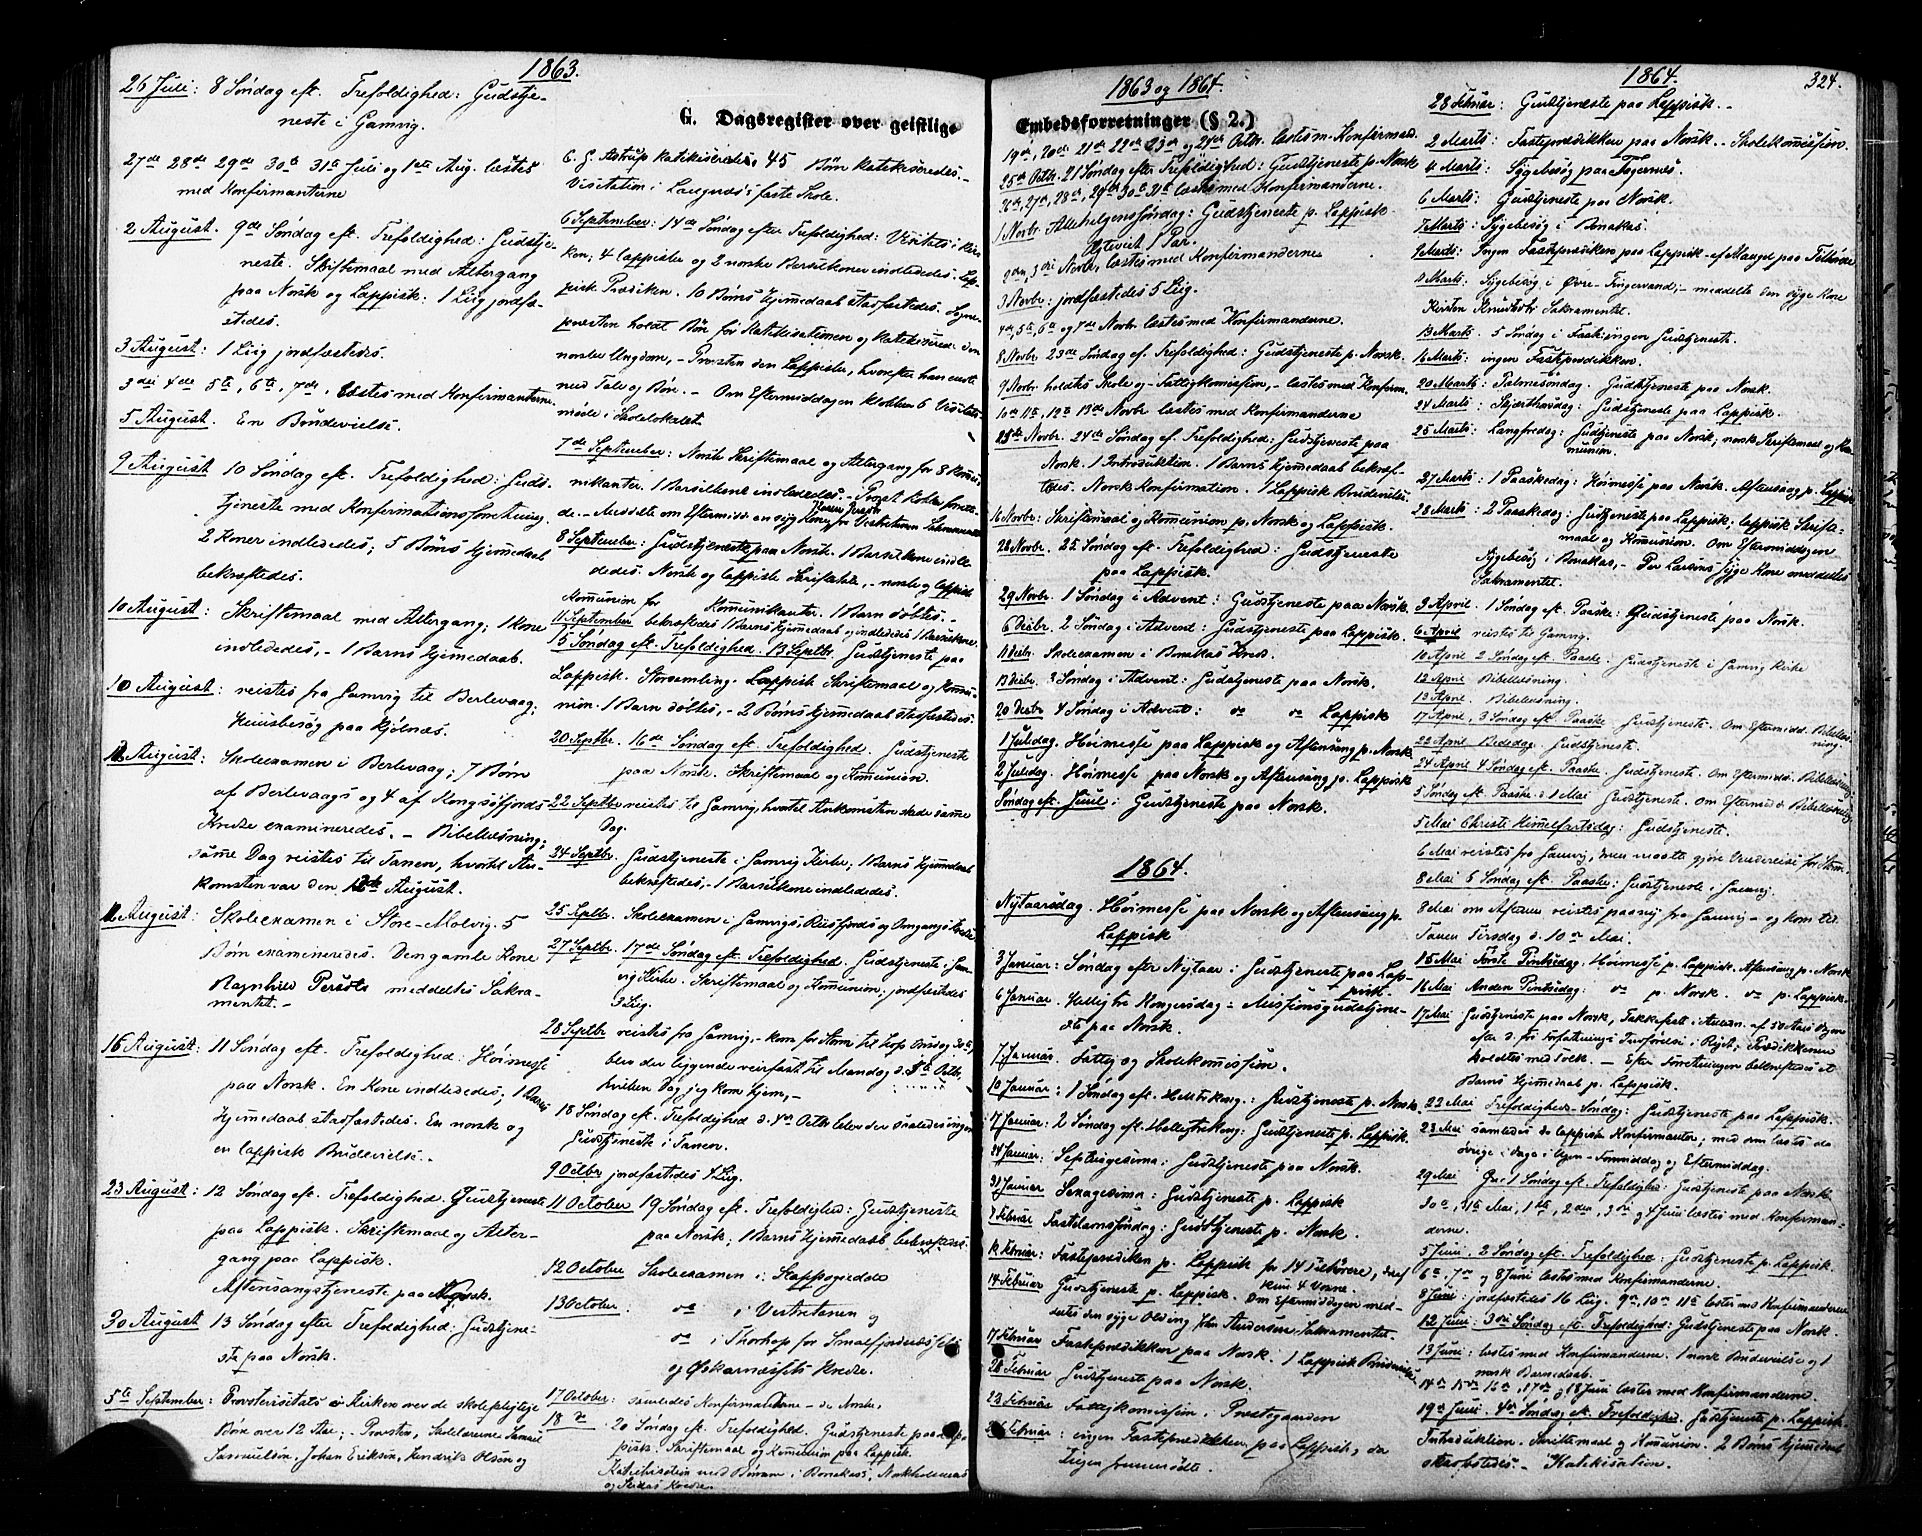 1863.
G. Dagsregister over geistlige
26 Juli: 8 Søndag eft. Trefoldighed: Gudstje-
neste i Gamvig.
27de 28de 29de 30te 31te Juli og 1ste Aug. læstes
med Konfirmanterne
2 August. 9de Søndag eft. Trefoldighed: Gudstje-
neste. Skriftemaal med Altergang
paa Norsk og Lappisk: 1 Liig jordfæ-
stedes.
3 August: 1 Liig jordfæstedes.
3die 4de 5te, 6te, 7de, læstes med Konfirmanterne.
5 August. En Brudevielse.
9 August 10 Søndag eft. Trefoldighed: Guds-
tjeneste med Konfirmationsforretning.
2 Koner indlededes; 5 Børns hjemmedaab
bekræftedes.
10 August: Skriftemaal med Altergang; 1 Kone
indlededes, - 1 Barns hjemedaab.
10 August: reistes fra Gamvig til Berlevaag;
Huusbesøg paa Kjølnæs.
August: Skoleexamen i Berlevaag; 7 Børn
af Berlevaags og 4 af Kongsøfjords
Kredse examineredes. - Bibellæsning;
samme Dag reistes til Tanen, hvortil An-
komsten var den August.
August: Skoleexamen i Store-Molvig. 5
Børn examineredes. Den gamle Kone
Ragnhild Persdtr meddeltes Sakra-
mentet. -
16 August: 11 Søndag eft. Trefoldighed. Høimesse
paa Norsk. En Kone indlededes; 1 Barns
hjemedaab stadfæstedes. En norsk og
en lappisk Brudevielse.
23 August: 12 Søndag eft. Trefoldighed. Gudstjeneste
paa Lappisk. Skriftemaal og Alter-
gang paa Lappisk.
Aftensangstjeneste paa Norsk.
30 August 13 Søndag efter Trefoldighed: Gudstjene-
ste paa Norsk.
5te September: Provstevisitats i Kirken over de skolepligtige
Børn over 12 Aar; Provsten, Skolelærerne Samuel
Samuelsen, Johan Eriksen, Hendrik Olsen og
6. G. Astrup katikiserede; 45 Børn katekiseredes. -
Visitation i Langnæs faste Skole.
6 September: 14de Søndag efter Trefoldighed: Visitats i Kir-
ken; 4 lappiske og 2 norske Barselkoner indlededes. Lap-
pisk Prædiken. 10 Børns hjemmedaab stadfæstedes. Sogne-
presten holdt Bøn før Katekisationen og katekiserede den
norske Ungdom, - Provsten den Lappiske, hvorefter han endte
med Tale og Bøn. - Om Eftermiddagen Klokken 6 Visitats-
møde i Skolelokalet.
7de September: Norsk Skriftemaal og Altergang for 8 Kommu-
nikanter. 1 Barselkone indlededes. -
8 September: Gudstjeneste paa Norsk. 1 Barselkone indle-
dedes. Norsk og lappisk Skriftetale, - norsk og lappisk
Komunion for Komunikanter. 1 Barn døbtes. -
11 September bekræftedes 1 Barns hjemedaab og indlededes 1 Barselkone.
15 Søndag eft. Trefoldighed. 13 Septbr. Gudstjeneste paa
Lappisk. Storsamling. Lappisk Skriftemaal og Komu-
nion. 1 Barn døbtes, - 2 Børns hjemedaab stadfæstedes.
20 Septbr. 16de Søndag eft. Trefoldighed. Gudstjeneste
paa Norsk. Skriftemaal og Komunion.
22 Septbr reistes til Gamvig, hvortil Ankomsten skede samme
Dag.
24 Septbr. Gudstjeneste i Gamvig Kirke; 1 Barns hjemedaab
bekræftedes, - 1 Barselkone indlededes.
25 Septbr. Skoleexamen i Gamvigs, Risfjords og Omgangs Kredse
27 Septbr. 17de Søndag eft. Trefoldighed. Gudstjeneste i Gam-
vig Kirke. Skriftemaal og Komunion; jordfæstedes
3 Liig.
28 Septbr reistes fra Gamvig, - kom for Storm til Hop Onsdag 30te,
blev der liggende veirfast til Mandag d. 5te Octbr,
hvilken Dag jeg kom hjem, -
18 Søndag eft. Trefoldighed d. 4de Octbr blev der saaledes ingen
Gudstjeneste i Tanen.
9 Octbr jordfæstedes 4 Liig.
11 October 19 Søndag eft. Trefoldighed: Gudstjeneste
paa Norsk; 1 Barns hjemedaab bekræftedes.
12 October Skoleexamen i
13 October. do i Vestertanen og
do i Thorhop for Smalfjordnæssets
og Øskarnæssets Kredse.
17 October: samledes Konfirmanderne - de Norske,
18 do 20 Søndag eft. Trefoldighed. Gudstjeneste paa Lap-
pisk; Skriftemaal og Komunion paa Lappisk.
Katechisation med Børnene i Bonakas,
1863 og 1864.
Embedsforretninger (§ 2.)
19de, 20de 21de 22de 23de og 24de Octbr. læstes m. Konfirmand.
25de Octbr. 21 Søndag efter Trefoldighed: Gudstjeneste p. Norsk
26de, 27de, 28de, 29de 30te 31te læstes med Konfirmanderne.
1 Novbr. Allehelgens Søndag: Gudstjeneste p. Lappisk.
Egteviet 1 Par.
2den, 3die Novbr. læstes med Konfirmanderne
3 Novbr: jordfæstedes 5 Liig.
4de, 5te, 6te og 7de Novbr læstes med Konfirmanderne.
8 Novbr. 23de Søndag ef. Trefoldighed: Gudstjeneste p. Norsk.
9 Novbr. holdtes Skole og Fattigkomission, - læstes med Konfirm.
10de 11te, 12te 13de Novbr. læstes med Konfirmanderne
15te Novbr. 24de Søndag ef. Trefoldighed: Gudstjeneste paa
Norsk. 1 Introduktion. 1 Barns hjemmedaab bekræf-
tedes. Norsk Konfirmation. 1 Lappisk Brudevielse
16 Novbr: Skriftemaal og Komunion p. Norsk og Lappisk.
22 Novbr. 25 Søndag eft. Trefoldighed: Gudstjeneste
paa Lappisk.
29 Novbr. 1 Søndag i Advent: Gudstjeneste paa Norsk.
6 Decbr. 2 Søndag i Advent: Gudstjeneste paa Lappisk.
11 Decbr. Skoleexamen i Bonakas Kreds.
13 Decbr. 3 Søndag i Advent: Gudstjeneste paa Norsk.
20 Decbr 4 Søndag i Advent: do do Lappisk
1 Juledag. Høimesse paa Lappisk og Aftensang p. Norsk
2 Juledag. Høimesse paa Norsk og Aftensang p. Lappisk
Søndag eft. Juul: Gudstjeneste paa Norsk.
1864.
Nytaarsdag. Høimesse paa Norsk og Aftensang p.
Lappisk
3 Januar: Søndag efter Nytaar: Gudstjeneste paa Lap-
pisk.
6 Januar. Hellig tre Kongersdag = Missionsgudstjene-
ste paa Norsk.
7 Januar: Fattig og Skolekomission.
10 Januar: 1 Søndag eft. Hell.3Kong.: Gudstjeneste p. Norsk.
17 Januar: 2 Søndag eft. Helligtrekong: Gudstjeneste p. Lappisk.
24 Januar: Septuagesima: Gudstjeneste paa Norsk.
31 Januar: Sexagesima: Gudstjeneste p. Lappisk
7 Februar Fastelavnssøndag: Gudstjeneste p. Norsk.
Februar: Fasteprædiken p. Lappisk for 14 Tilhørere, deraf
kun 4 Voxne.
14 Februar Gudstjeneste p. Lappisk. Om Eftermiddagen med-
deltes den syge Olding Andersen Sakramentet.
17 Februar Fasteprædikken paa Norsk. 1 Lappisk Brudevielse
Februar Gudstjeneste paa Norsk.
23 Februar Fattigkomission i Prestegaarden
Februar: ingen Fasteprædikken paa Lappisk, da
Ingen fremmødte.
1864.
324.
28 Februar: Gudstjeneste paa Lappisk. -
2 Marts: Fasteprædikken paa Norsk. - Skolekomission.
4 Marts: Sygebesøg paa
6 Marts: Gudstjeneste paa Norsk.
7 Marts: Sygebesøg i Bonakas.
9 Marts: Ingen Fasteprædiken paa Lappisk af Mangel paa Tilhørere
Marts. Sygebesøg i Øvre- - meddelte den syge Kone
Kirsten Knudsdtr Sakramentet.
13 Marts. 5 Søndag i Fasten: ingen Gudstjeneste.
16 Marts: ingen Fasteprædikken.
20 Marts: Palmesøndag. Gudstjeneste paa Norsk.
24 Marts: Skjærthorsdag: Gudstjeneste paa Lappisk.
25 Marts: Langfredag: Gudstjeneste paa Norsk; norsk Skriftemaal og Kom-
munion.
27 Marts: 1 Paaskedag: Høimesse paa Norsk. Aftensang p. Lappisk
28 Marts: 2 Paaskedag: Gudstjeneste paa Lappisk; lappisk Skrifte-
maal og Komunion. Om Eftermiddagen
Sygebesøg i Bonakas, - Per Larsens syge Kone meddeltes
Sakramentet.
3 April. 1 Søndag eft. Paaske: Gudstjeneste paa Norsk.
6 April reistes til Gamvig.
10 April 2 Søndag eft. Paaske. Gudstjeneste i Gamvig Kirke
12 April Bibellæsning.
13 April Bibellæsning.
17 April, 3 Søndag eft Paaske Gudstjeneste. Om Eftermidd. Bibellæs-
ning.
22 April Bededag. Gudstjeneste.
24 April 4 Søndag eft. Paaske. Gudstjeneste. Om Eftermidd. Bibellæsning.
5 Søndag eft. Paaske d. 1 Mai Gudstjeneste. Om Eftermidd Bibellæsning.
5 Mai Christi Himmelfartsdag: Gudstjeneste.
6 Mai reistes fra Gamvig, men maatte gjøre Vendereise for Storm.
8 Mai 6 Søndag eft. Paaske: Gudstjeneste i Gamvig.
8 Mai om Aftenen reistes paany fra Gamvig - og kom til
Tanen Tirsdag d. 10de Mai.
15 Mai Første Pintsedag. Høimesse p. Lappisk. Aftensang p. Norsk
16 Mai Anden Pintsedag: do p. Norsk. do p. Lappisk.
17 Mai Gudstjeneste paa Norsk, Takkefest i Anledn. af 50 Aars Dagen
efter d. fri Forfatnings Indførelse i Riget; Prædikkenen
holdtes med Tolk. - Efter Forretningen bekræftedes et
Barns hjemedaab p. Lappisk.
22 Mai Trefoldigheds-Søndag: Gudstjeneste paa Lappisk.
23 Mai samledes de lappiske Konfirmanter; med dem læstes de
øvrige 5 Dage i Ugen - Formiddag og Eftermiddag.
29 Mai 1 Søndag eft. Trefoldighed: Gudstjeneste paa Norsk.
30te, 31te Mai, 1ste, 2den, 3die og 4 Juni læstes med Konfirman-
derne.
5 Juni, 2 Søndag eft. Trefoldighed: Gudstjeneste paa Lappisk.
6te, 7de og 8 Juni læstes med Konfirmanderne.
8 Juni: jordfæstedes 16 Liig. 9de, 10de 11te læstes med Konfirmanderne
12 Juni: 3die Søndag eft. Trefoldighed: Gudstjeneste paa Norsk.
13 Juni: læstes med Konfirmanderne. 1 norsk Brudevielse og 1
norsk Barnedaab.
14de 15de 16de, 17de og 18 Juni læstes med Konfirmanderne.
19de Juni. 4de Søndag eft. Trefoldighed. Gudstjeneste p. Lappisk.
Introduktion. Skriftemaal og Komunion. 2 Børns hjemedaab
stadfæstedes. - Katekisation.